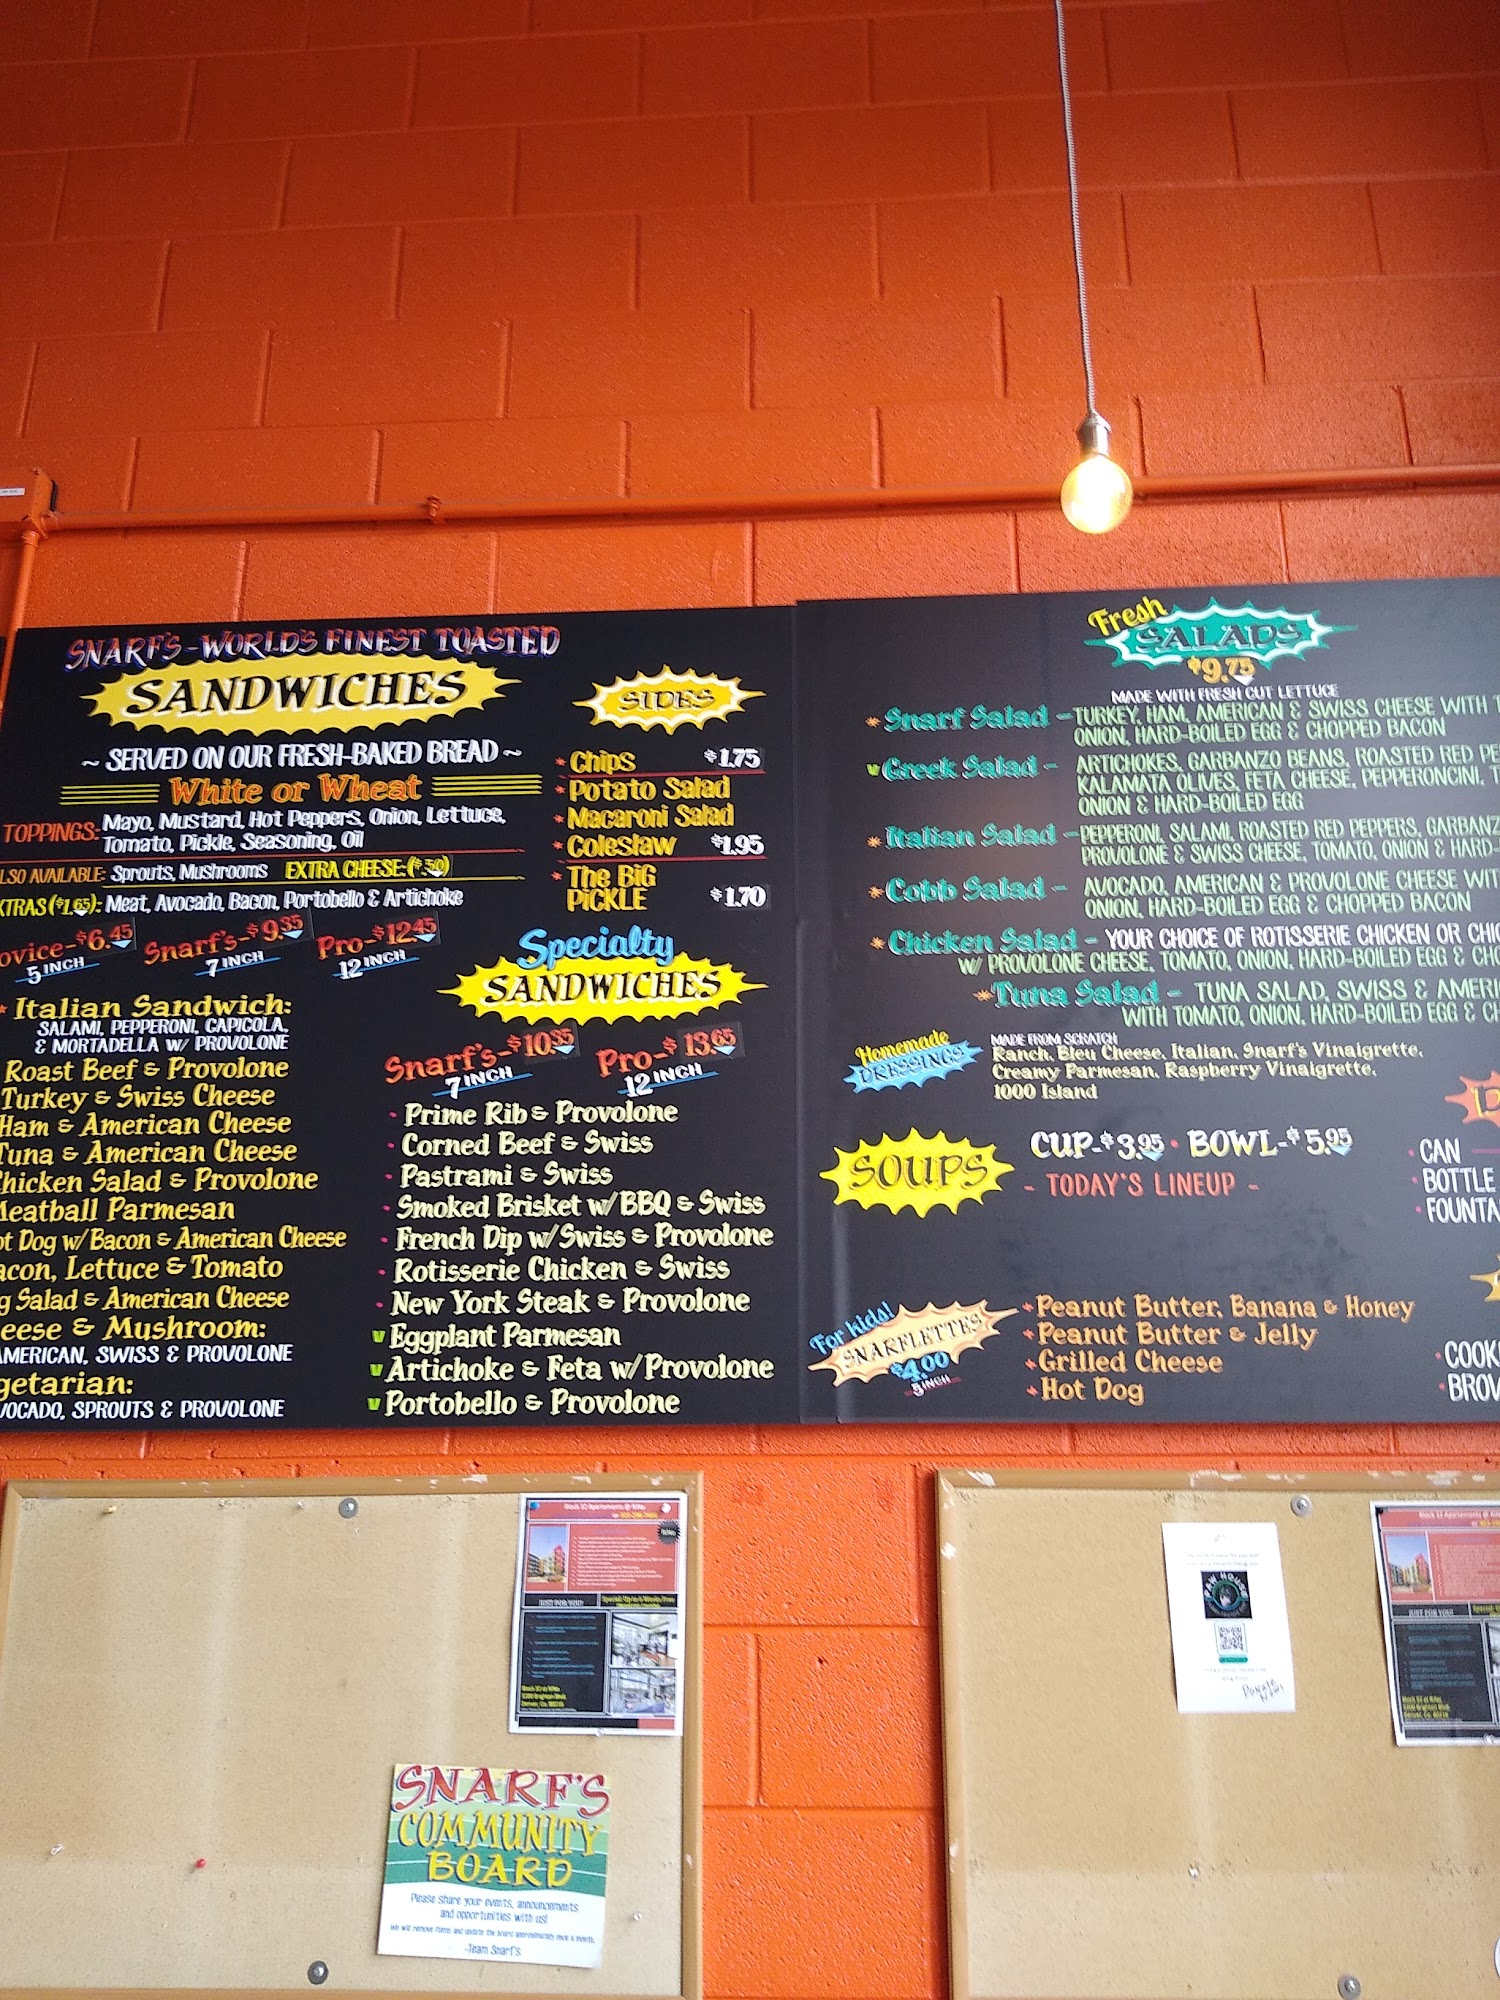 SNARF'S - WORLD'S FINEST TOASTED
SANDWICHES
~ SERVED ON OUR FRESH-BAKED BREAD ~
White or Wheat
TOPPINGS: Mayo, Mustard, Hot Peppers, Onion, Lettuce,
Tomato, Pickle, Seasoning, Oil
LSO AVAILABLE: Sprouts, Mushrooms EXTRA CHEESE: ($.50)
XTRAS ($1.65): Meat, Avocado, Bacon, Portobello & Artichoke
ovice-$6.45
5 INCH
Snarf's-$9.35
7 INCH
Pro-$12.45
12 INCH
* Italian Sandwich:
SALAMI, PEPPERONI, CAPICOLA,
& MORTADELLA W/ PROVOLONE
Roast Beef & Provolone
Turkey & Swiss Cheese
Ham & American Cheese
Tuna & American Cheese
Chicken Salad & Provolone
Meatball Parmesan
ot Dog w/Bacon & American Cheese
acon, Lettuce & Tomato
g Salad & American Cheese
eese & Mushroom:
AMERICAN, SWISS & PROVOLONE
getarian:
VOCADO, SPROUTS & PROVOLONE
SIDES
* Chips $1.75
* Potato Salad
* Macaroni Salad
* Coleslaw $1.95
* The BIG
PICKLE $1.70
Specialty
SANDWICHES
Snarf's-$10.35
7 INCH
Pro-$13.65
12 INCH
Prime Rib & Provolone
Corned Beef & Swiss
Pastrami & Swiss
Smoked Brisket w/BBQ & Swiss
French Dip w/Swiss & Provolone
Rotisserie Chicken & Swiss
New York Steak & Provolone
V Eggplant Parmesan
V Artichoke & Feta w/Provolone
V Portobello & Provolone
Fresh
SALADS
$9.75
MADE WITH FRESH CUT LETTUCE
* Snarf Salad - TURKEY, HAM, AMERICAN & SWISS CHEESE WITH T
ONION, HARD-BOILED EGG & CHOPPED BACON
V Greek Salad - ARTICHOKES, GARBANZO BEANS, ROASTED RED PE
KALAMATA OLIVES, FETA CHEESE, PEPPERONCINI, T
ONION & HARD-BOILED EGG
* Italian Salad - PEPPERONI, SALAMI, ROASTED RED PEPPERS, GARBANZ
PROVOLONE & SWISS CHEESE, TOMATO, ONION & HARD-
* Cobb Salad - AVOCADO, AMERICAN & PROVOLONE CHEESE WIT
ONION, HARD-BOILED EGG & CHOPPED BACON
* Chicken Salad - YOUR CHOICE OF ROTISSERIE CHICKEN OR CHIC
W/ PROVOLONE CHEESE, TOMATO, ONION, HARD-BOILED EGG & CHO
* Tuna Salad - TUNA SALAD, SWISS & AMERI
WITH TOMATO, ONION, HARD-BOILED EGG & CH
Homemade
DRESSINGS
MADE FROM SCRATCH
Ranch, Bleu Cheese, Italian, Snarf's Vinaigrette,
Creamy Parmesan, Raspberry Vinaigrette,
1000 Island
SOUPS
CUP-$3.95 • BOWL-$5.95
- TODAY'S LINEUP -
For kids!
SNARFLETTES
$4.00
5 INCH
Peanut Butter, Banana & Honey
Peanut Butter & Jelly
Grilled Cheese
Hot Dog
D
CAN
BOTTLE
FOUNTA
COOK
BROW
JUST FOR YOU!
PAW HOUSE
DONATE
NOW!
JUST FOR YOU!
SNARF'S
COMMUNITY
BOARD
Please share your events, announcements
and opportunities with us!
We will remove items and update the board approximately once a month.
-Team Snarf's